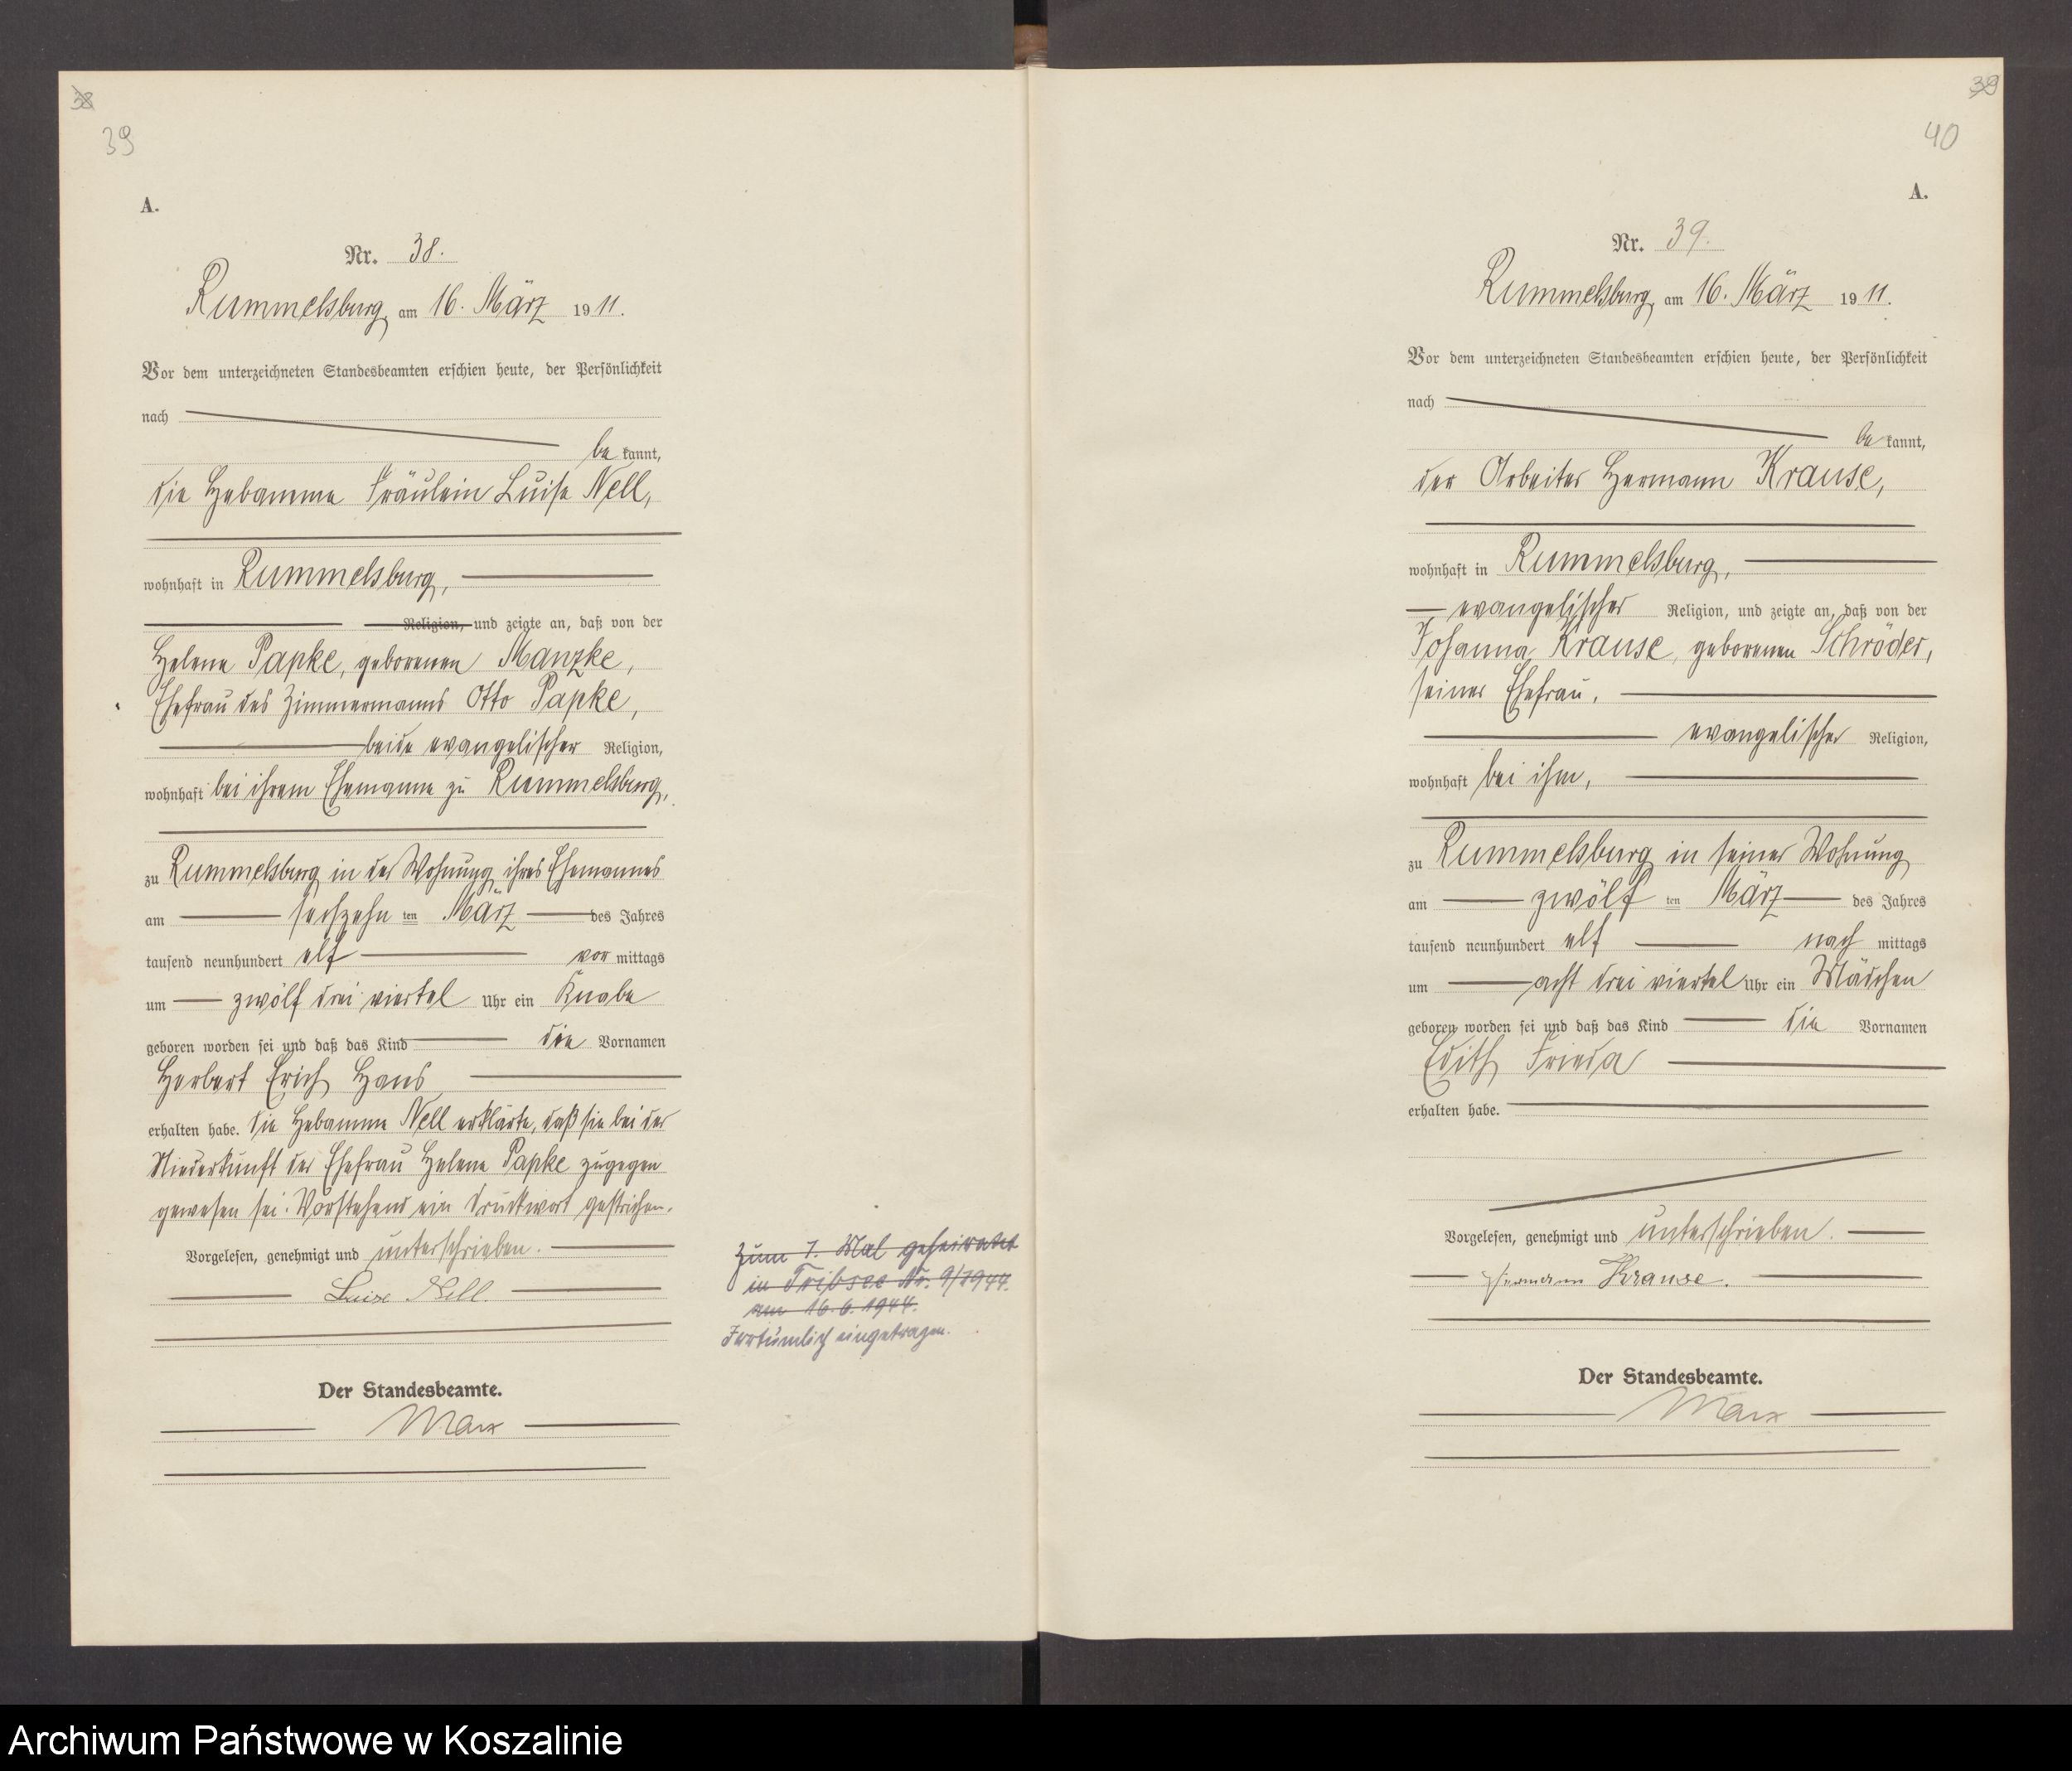 38
39
A.
Nr. 38.
Rummelsburg, am 16. März 1911.
Vor dem unterzeichneten Standesbeamten erschien heute, der Persönlichkeit
nach
be kannt,
die Hebamme Fräulein Luise Nell,
wohnhaft in Rummelsburg,
Religion, und zeigte an, daß von der
Helene Papke, geborenen Manzke,
Ehefrau des Zimmermanns Otto Papke,
beide evangelischer Religion,
wohnhaft bei ihrem Ehemanne zu Rummelsburg,
zu Rummelsburg in der Wohnung ihres Ehemannes
am sechzehn ten März des Jahres
tausend neunhundert elf vor mittags
um zwölf drei viertel Uhr ein Knabe
geboren worden sei und daß das Kind die Vornamen
Herbert Erich Hans
erhalten habe. Die Hebamme Nell erklärte, daß sie bei der
Niederkunft der Ehefrau Helene Papke zugegen
gewesen sei. Vorstehend ein Druckwort gestrichen.
Vorgelesen, genehmigt und unterschrieben.
Luise Nell.
Der Standesbeamte.
Marx
Zum 1. Mal geheiratet
in Tribsee Nr. 9/1944.
am 16.6.1944.
Irrtümlich eingetragen.
39
40
A.
Nr. 39.
Rummelsburg, am 16. März 1911.
Vor dem unterzeichneten Standesbeamten erschien heute, der Persönlichkeit
nach
be kannt,
der Arbeiter Hermann Krause,
wohnhaft in Rummelsburg,
evangelischer Religion, und zeigte an, daß von der
Johanna Krause, geborenen Schröder,
seiner Ehefrau,
evangelischer Religion,
wohnhaft bei ihm,
zu Rummelsburg in seiner Wohnung
am zwölf ten März des Jahres
tausend neunhundert elf nach mittags
um acht drei viertel Uhr ein Mädchen
geboren worden sei und daß das Kind die Vornamen
Edith Frieda
erhalten habe.
Vorgelesen, genehmigt und unterschrieben.
Hermann Krause.
Der Standesbeamte.
Marx
Archiwum Państwowe w Koszalinie